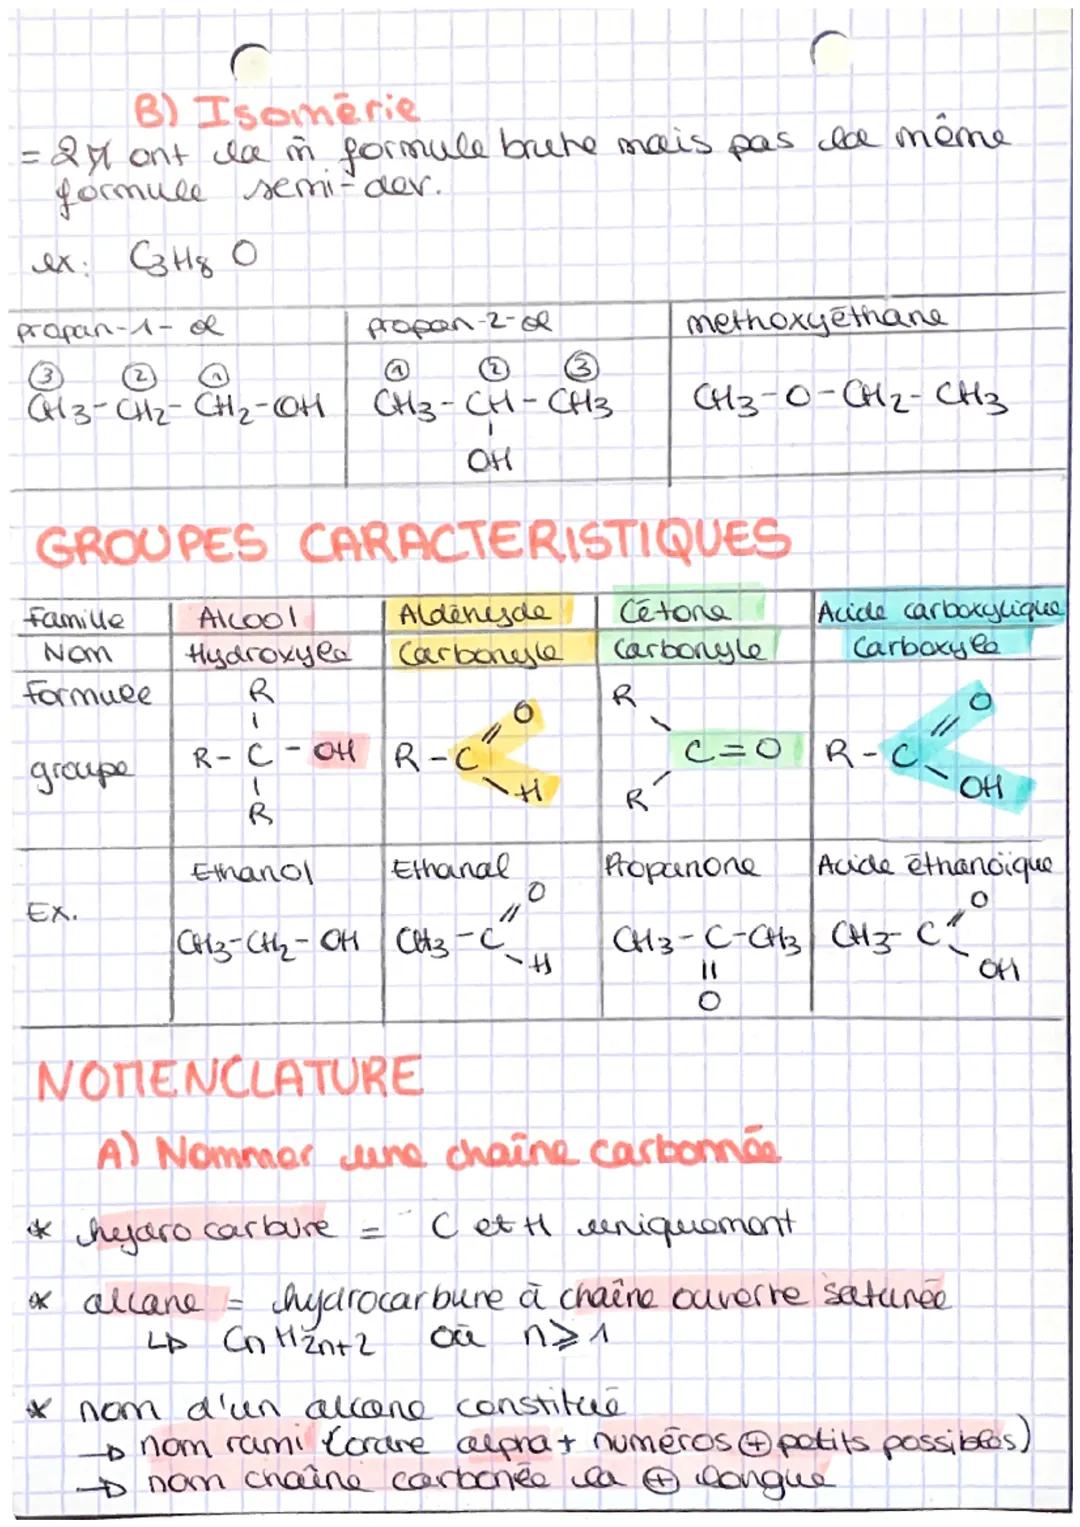 B) Isomérie
= 2 ont la m̂ formule brute mais pas la même
formule semi-dev.
ex: C3H8 O
propan-1-ol | propan-2-ol | methoxyéthane
③ ② ① | ① ② ③
CH3-CH2-CH2-OH | CH3-CH-CH3 | CH3-O-CH2-CH3
OH
GROUPES CARACTERISTIQUES
Famille | Alcool | Aldéhyde | Cétone | Acide carboxylique
Nom | Hydroxyle | Carbonyle | Carbonyle | Carboxyle
Formule | R | O | R | O
groupe | R-C-OH | R-C | C=O | R-C
R | H | R | OH
Ex. | Ethanol | Ethanal | Propanone | Acide éthanoïque
O | O
CH3-CH2-OH | CH3-C | CH3-C-CH3 | CH3-C
H | O | OH
NOMENCLATURE
A) Nommer une chaîne carbonnée
* hydrocarbure = C et H uniquement
* alcane = hydrocarbure à chaîne ouverte saturée
↳ CnH2n+2 où n≥1
* nom d'un alcane constitué
→ nom rami (ordre alpha + numéros ⊕ petits possibles)
→ nom chaîne carbonée la ⊕ longue